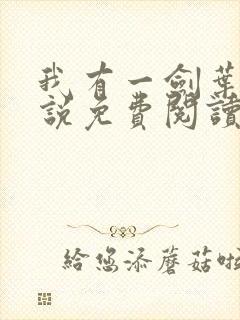 我有一劍葉
說免費閱讀
給您添蘑菇啦